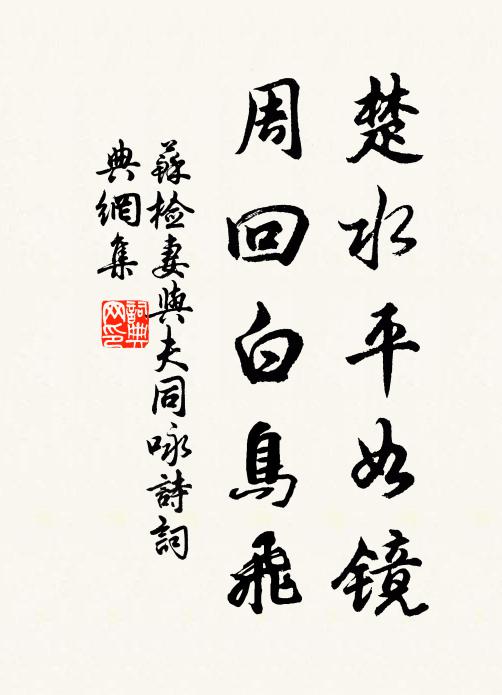 楚水平如镜
周回白鳥飛
蘇檢妻與夫同咏詩詞
典網集
詞典
网印